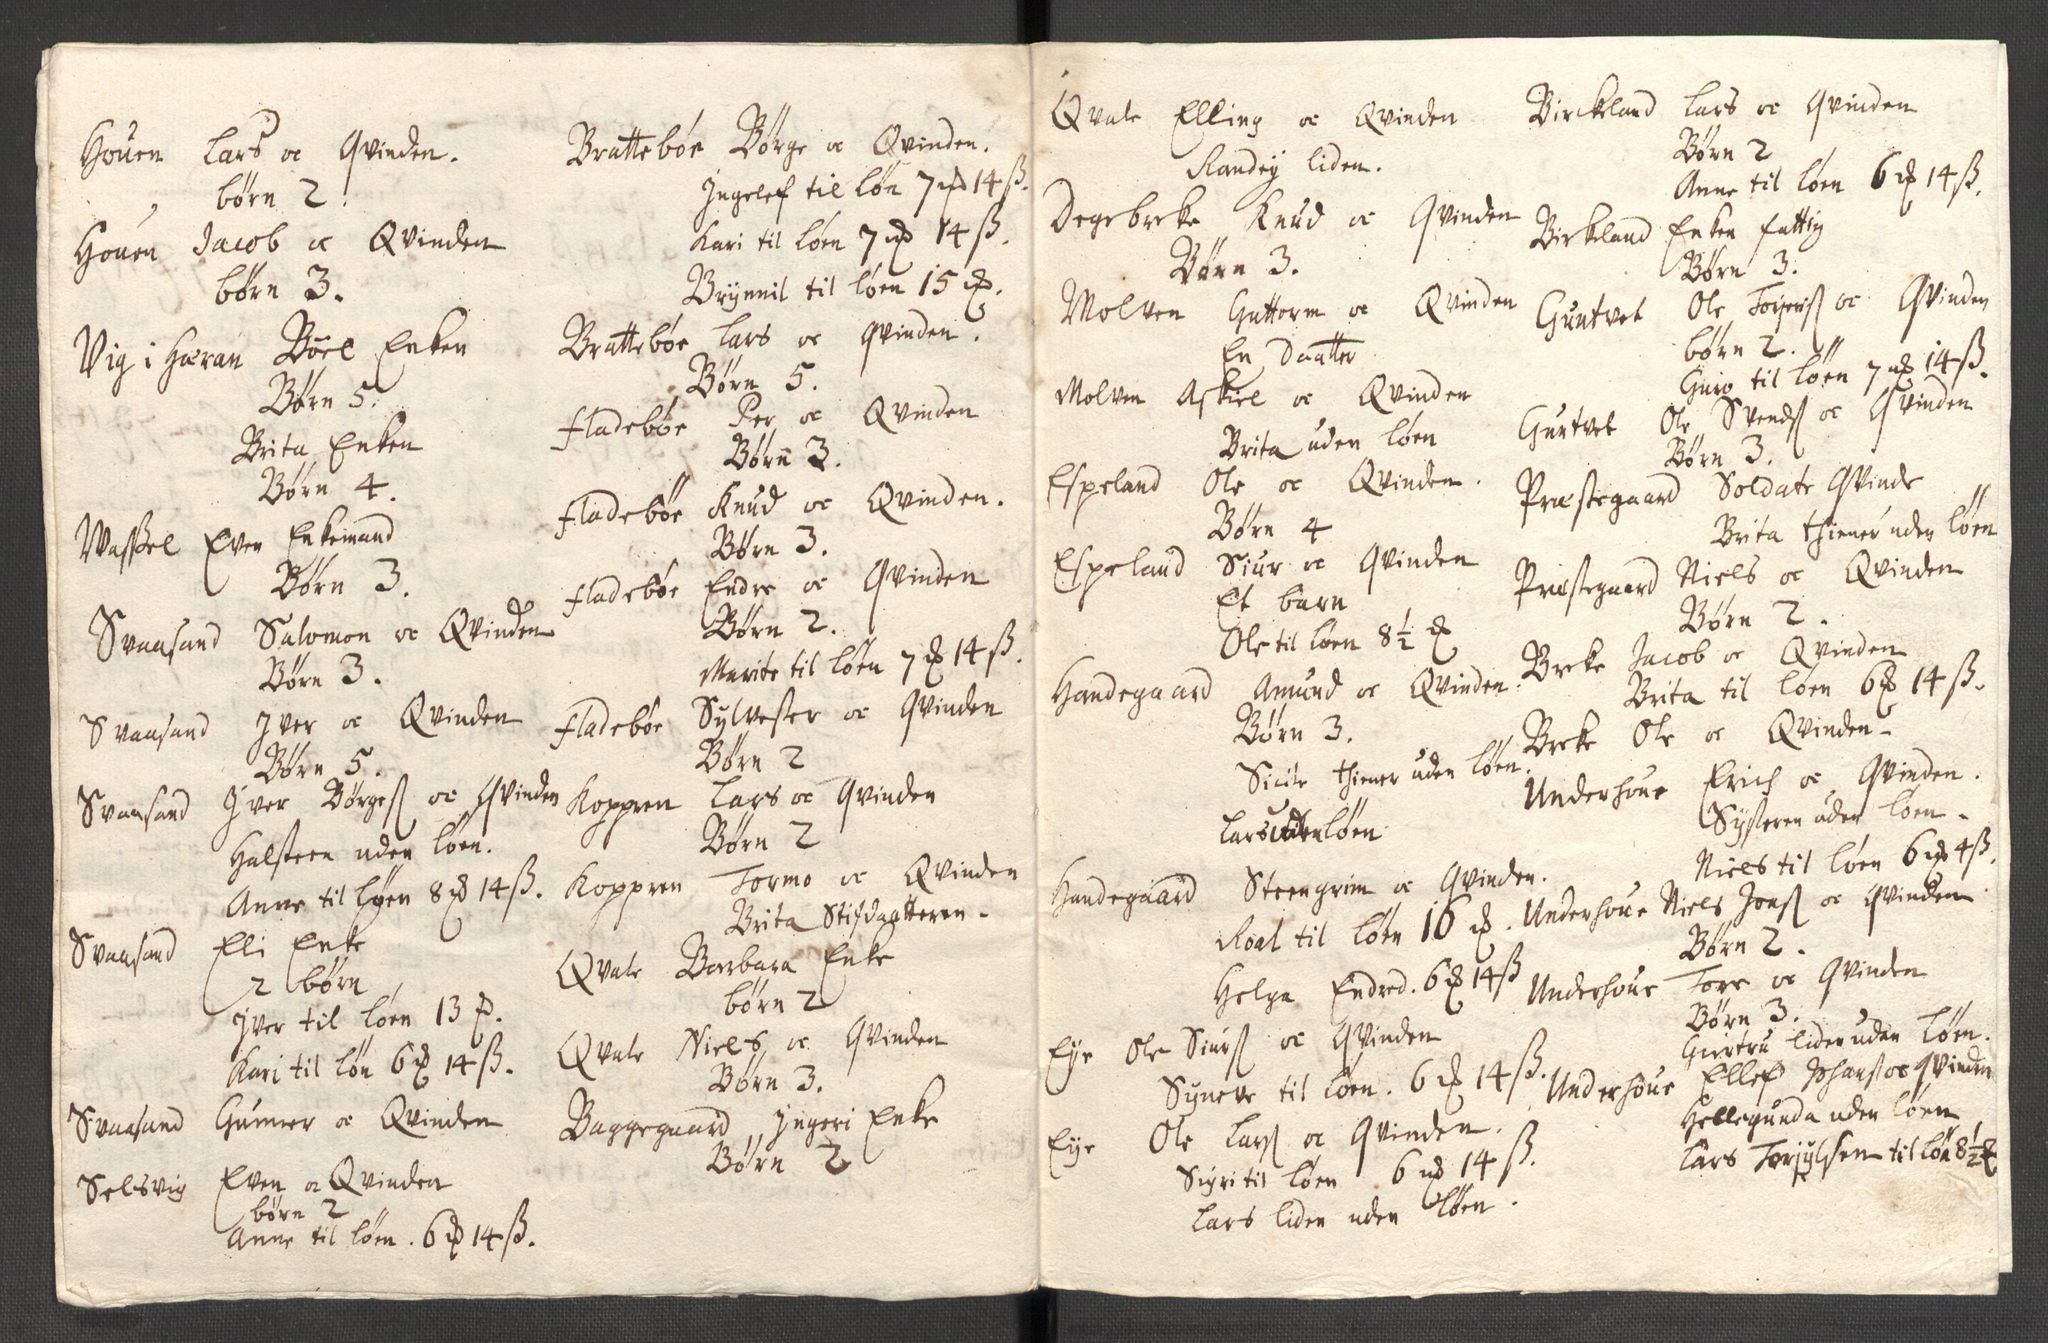 Houen Lars oc Qvinden.
børn 2.
Houen Jacob oc Qvinden
børn 3.
Vig i Hæran Boel Enken
Børn 5.
Brita Enken
Børn 4.
Wassel Even Enkemand
Børn 3.
Svaasand Salomon oc Qvinden
Børn 3.
Svaasand Iver oc Qvinden
Børn 5.
Svaasand Iver Børgeß oc Qvinden
Halsteen uden løen.
Anne til løen 8 14 ß.
Svaasand Eli Enke
2 børn
Iver til løen 13
Kari til løn 6 14 ß.
Svaasand Gunner oc Qvinden
Selsvig Even oc Qvinden
børn 2
Anne til løen. 6 14 ß.
Brattebøe Børge oc Qvinden.
Ingelef til løn 7 14 ß.
Kari til løen 7 14 ß.
Brynnil til løen 15
Brattebøe Lars oc Qvinden.
Børn 5.
Fladebøe Per oc Qvinden
Børn 3.
Fladebøe Knud oc Qvinden.
Børn 3.
Fladebøe Endre oc Qvinden
Børn 2.
Marite til løen 7 14 ß.
Fladebøe Sylvester oc Qvinden
Børn 2
Koppren Lars oc Qvinden
Børn 2
Koppren Tormo oc Qvinden
Brita Stifdaatteren.
Qvale Barbara Enke
børn 2
Qvale Niels oc Qvinden
Børn 3.
Baggegaard Ingeri Enke
Børn 2
Qvale Elling oc Qvinden
Randey liden.
Degebreke Knud oc Qvinden
Børn 3.
Molven Guttorm oc Qvinden
En Daatter
Molven Askiel oc Qvinden
Brita uden løen
Espeland Ole oc Qvinden.
Børn 4
Espeland Siur oc Qvinden
Et barn
Ole til løen 8½
Handegaard Amund oc Qvinden.
Børn 3.
thiener uden løen.
Lars uden løen
Handegaard Steengrim oc Qvinden.
Roal til løen 16
Helga Endred. 6 14 ß
Eye Ole Siurß oc Qvinden
Syneve til løen. 6 14 ß.
Eye Ole Larß oc Qvinden.
Sigri til løen 6 14 ß.
Lars liden uden løen.
Birckeland Lars oc Qvinden
Børn 2
Anne til løen 6 14 ß.
Birkeland Enken fattig
Børn 3.
Guntvet Ole oc Qvinden
børn 2.
Guro til løen 7 14 ß.
Guntvet Ole Svendß oc Qvinden
Børn 3.
Præstegaard Soldate Qvinde
Brita thiener uden løen
Præstegaard Niels oc Qvinden
Børn 2.
Breke Jacob oc Qvinden
Brita til løen 6 14 ß.
Breke Ole oc Qvinden
Underhoue Erich oc Qvinden.
Systeren uden løen.
Niels til løen 6 4 ß.
Underhoue Niels Jonß oc Qvinden
Børn 2.
Underhoue Tore oc Qvinden
Børn 3.
Giertru liden uden løen.
Underhoue Ellef Johanß oc Qvinden
Hellegunda uden løen
Lars Torjylsen til løn 8½